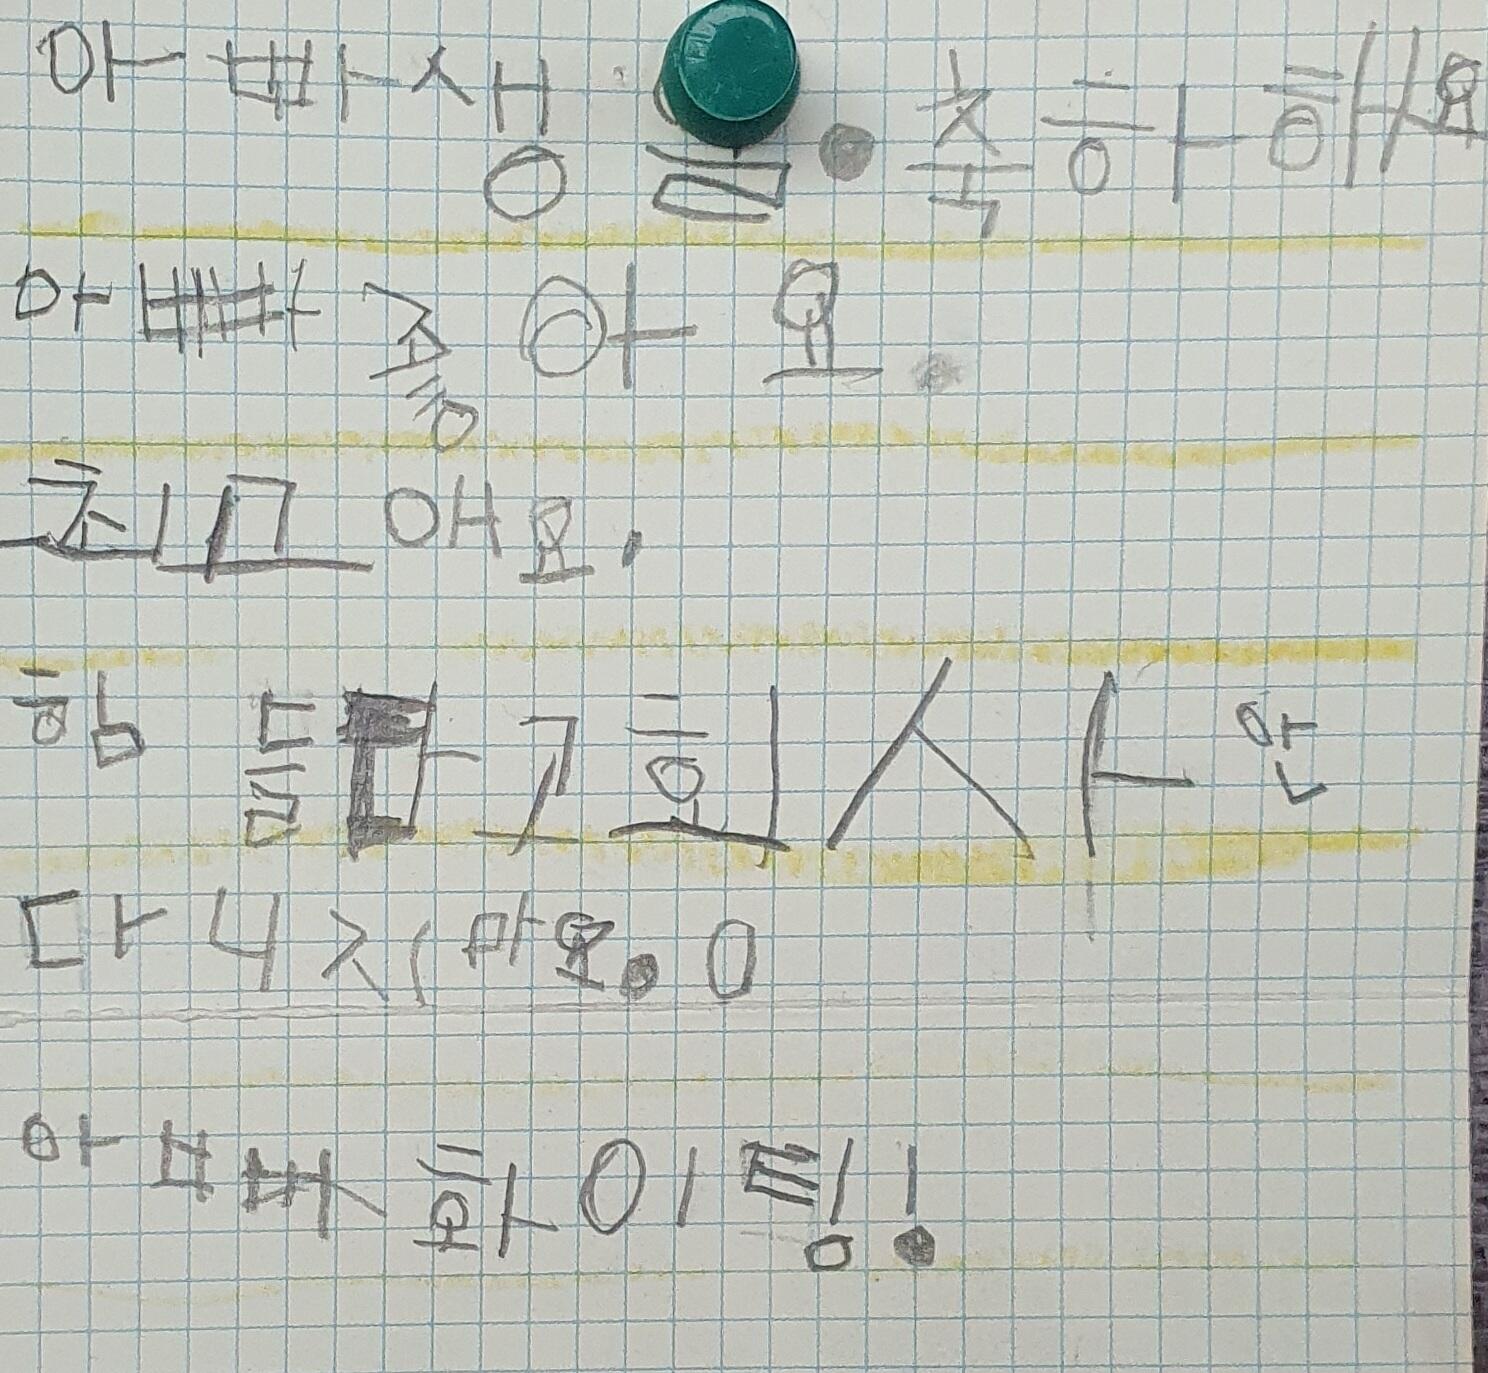 아빠 생 를. 축하해요
아빠 좋아요.
최고애요.
힘들다고 회사 안
다니지 마요.
아빠 화이팅!